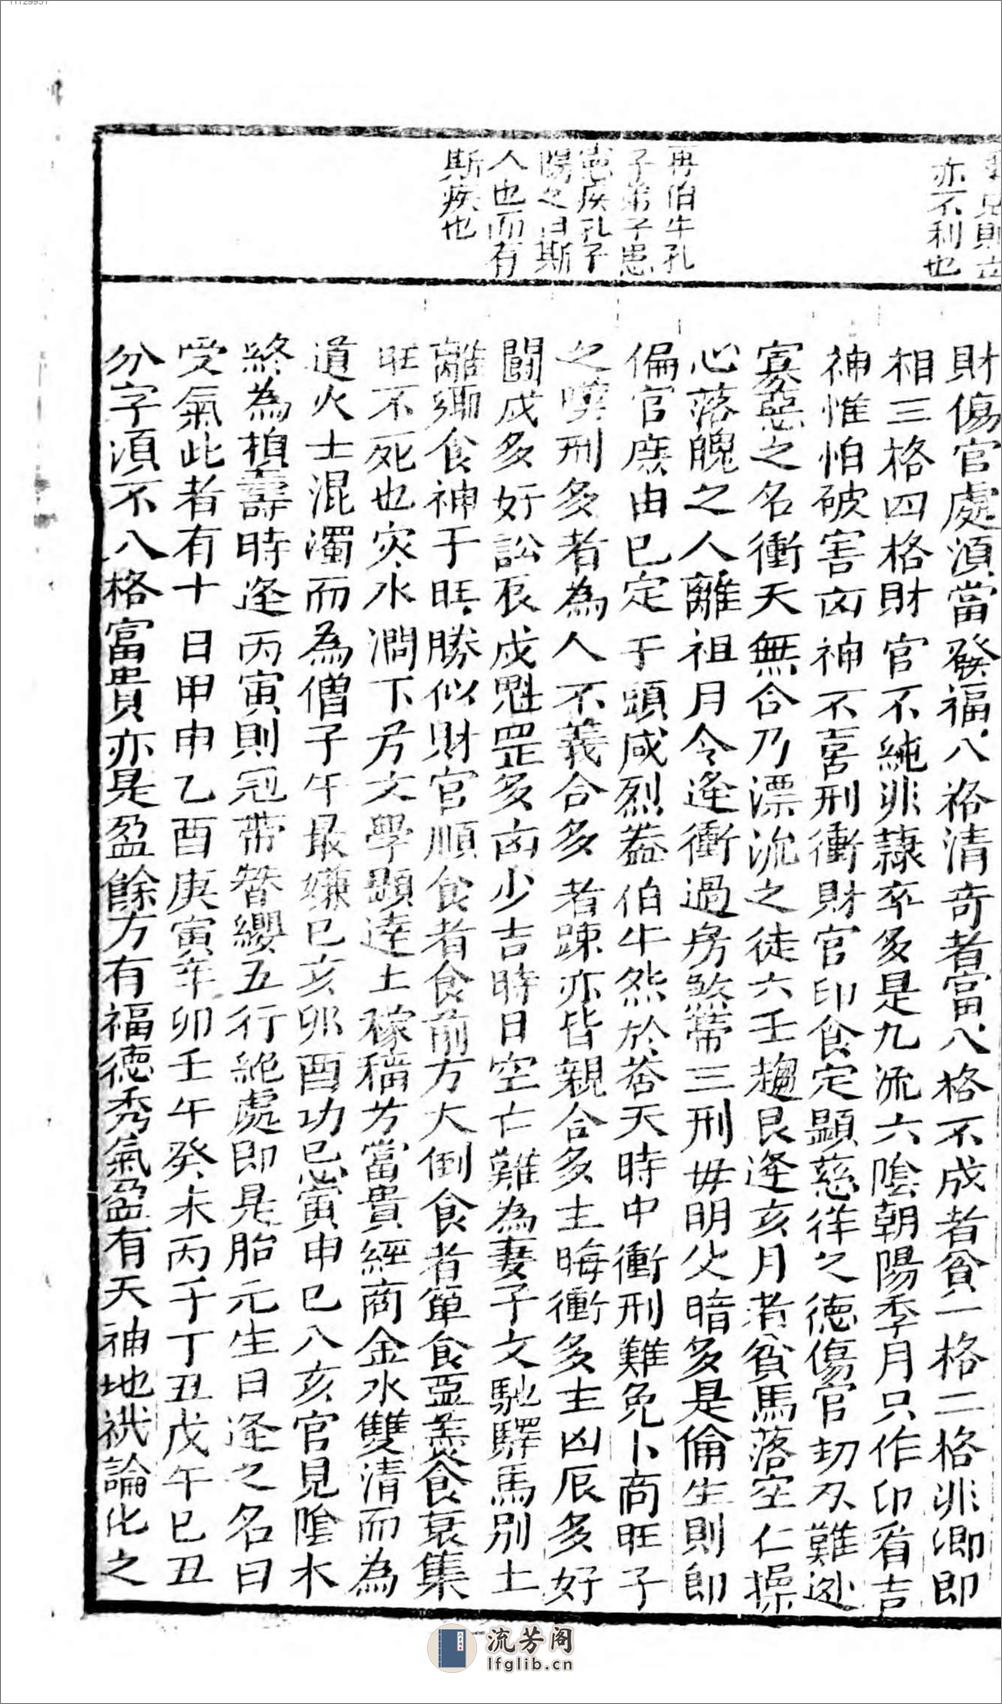 亦不利也
再伯牛孔
子弟子患
悪疾孔子
惕之曰斯
人也而有
斯疾也
財傷官處須當發福八格清奇者富八格不成者貧一格二格非卿即
相三格四格財官不純非隷卒多是九流六陰朝陽季月只作印看吉
神惟怕破害凶神不喜刑衝財官印食定顯慈祥之德傷官刧刄難逃
寡惡之名衝天無合乃漂流之徒六壬趨艮逢亥月者貧馬落空亡操
心落魄之人離祖月令逢衝過房煞帶三刑毋明父暗多是偷生則卽
偏官庶由已定于頭咸烈葢伯牛怨於蒼天時中衝刑難免卜商旺子
之嘆刑多者為人不義合多者踈亦皆親合多主晦衝多主凶辰多好
鬪戍多好訟辰戍魁罡多凶少吉時日空亡難為妻子文馳驛馬别土
離鄉食神于旺勝似財官順食者食前方大倒食者簞食豆羹食衰集
旺不死也灾水潤下方文學顯逹土稼穡方當貴經商金水雙清而為
道火土混濁而為僧子午最嫌巳亥卯酉切忌寅申巳八亥官見陰木
終為損壽時逢丙寅則冠帶簪纓五行絶處即是胎元生日逢之名曰
受氣此者有十日甲申乙酉庚寅辛卯壬午癸未丙子丁丑戊午巳丑
分字須不八格富貴亦是盈餘方有福德秀氣盈有天神地祇論化之
流芳阁
lfglib.cn